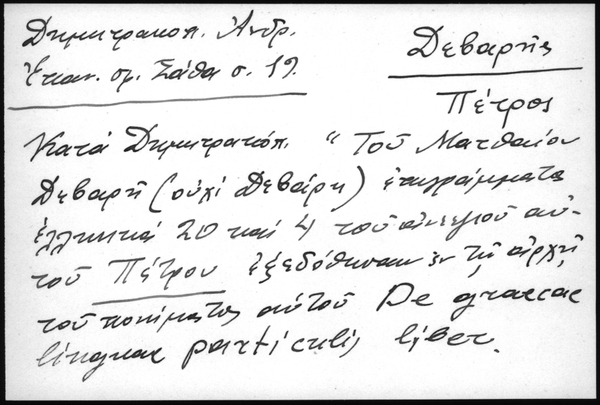 Δημητρακοπ. Ἀνδρ.
Ἐπαν. σφ. Σάθα σ. 19.
Δεβαρῆς
Πέτρος
Κατά Δημητρακόπ. "Τοῦ Ματθαίου
Δεβαρῆ (οὐχί Δεβάρη) ἐπιγράμματα
ἑλληνικά 20 καί 4 τοῦ ἀνεψιοῦ αὐ-
τοῦ Πέτρου ἐξεδόθησαν ἐν τῇ ἀρχῇ
τοῦ πονήματος αὐτοῦ De graecae
linguae particulis liber.